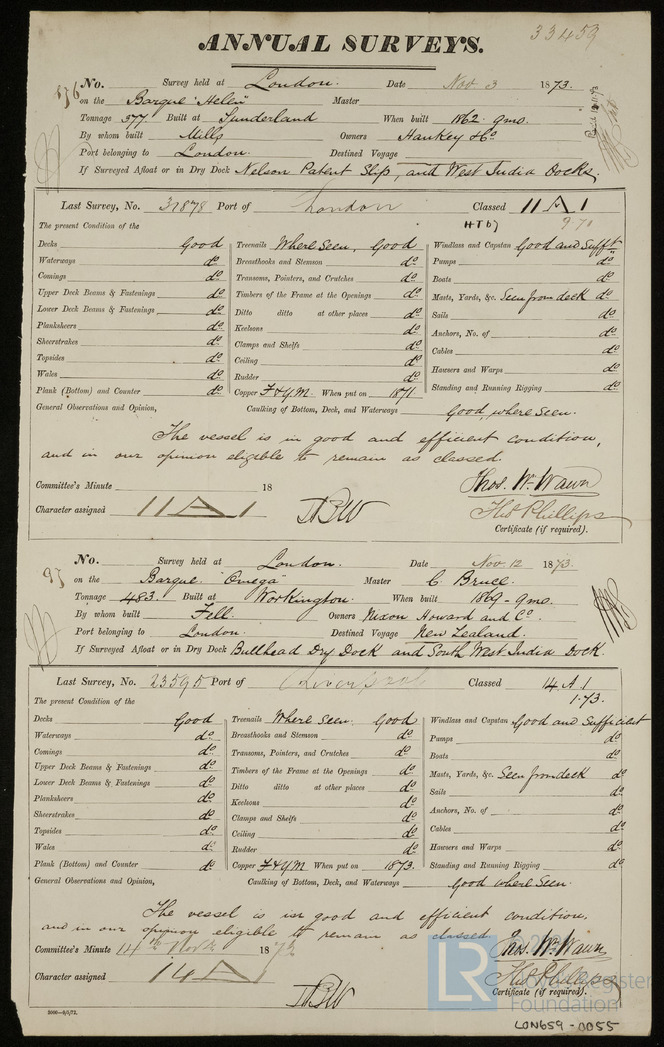 33459
ANNUAL SURVEYS.
No. Survey held at London. Date Nov. 3 1873.
on the Barque "Helen" Master
Tonnage 377 Built at Sunderland When built 1862. 9mo.
By whom built Mills Owners Hankey & Co
Port belonging to London. Destined Voyage
If Surveyed Afloat or in Dry Dock Nelson Patent Slip, and West India Docks.
Last Survey, No. 31878 Port of London Classed 11 A 1
The present Condition of the HT67 9 70
Decks Good Treenails Where Seen, Good Windlass and Capstan Good and Sufft
Waterways do Breasthooks and Stemson do Pumps do
Comings do Transoms, Pointers, and Crutches do Boats do
Upper Deck Beams & Fastenings do Timbers of the Frame at the Openings do Masts, Yards, &c. Seen from deck do
Lower Deck Beams & Fastenings do Ditto ditto at other places do Sails do
Planksheers do Keelsons do Anchors, No. of do
Sheerstrakes do Clamps and Shelfs do Cables do
Topsides do Ceiling do Hawsers and Warps do
Wales do Rudder do Standing and Running Rigging do
Plank (Bottom) and Counter do Copper F & Y.M. When put on 1871
General Observations and Opinion, Caulking of Bottom, Deck, and Waterways Good, where seen.
The vessel is in good and efficient condition,
and in our opinion eligible to remain as classed.
Committee's Minute 18 Thos. Wm. Wawn
Character assigned 11 A 1 Thos Phillips
Certificate (if required).
No. Survey held at London. Date Nov. 12 1873.
on the Barque "Omega" Master C. Bruce.
Tonnage 483. Built at Workington. When built 1869 - 9mo.
By whom built Fell. Owners Nixon Howard and Co.
Port belonging to London. Destined Voyage New Zealand.
If Surveyed Afloat or in Dry Dock Bullhead Dry Dock and South West India Dock.
Last Survey, No. 23595 Port of Liverpool Classed 14 A 1
The present Condition of the 1.73.
Decks Good Treenails Where Seen. Good Windlass and Capstan Good and Sufficient
Waterways do Breasthooks and Stemson do Pumps do
Comings do Transoms, Pointers, and Crutches do Boats do
Upper Deck Beams & Fastenings do Timbers of the Frame at the Openings do Masts, Yards, &c. Seen from deck do
Lower Deck Beams & Fastenings do Ditto ditto at other places do Sails do
Planksheers do Keelsons do Anchors, No. of do
Sheerstrakes do Clamps and Shelfs do Cables do
Topsides do Ceiling do Hawsers and Warps do
Wales do Rudder do Standing and Running Rigging do
Plank (Bottom) and Counter do Copper F & Y.M. When put on 1873.
General Observations and Opinion, Caulking of Bottom, Deck, and Waterways Good where Seen.
The vessel is in good and efficient condition,
and in our opinion eligible to remain as classed
Committee's Minute 14th Novr 1873 Thos. Wm. Wawn
Character assigned 14 A 1 Thos Phillips
Certificate (if required).
LR Register Foundation
LON659-0055